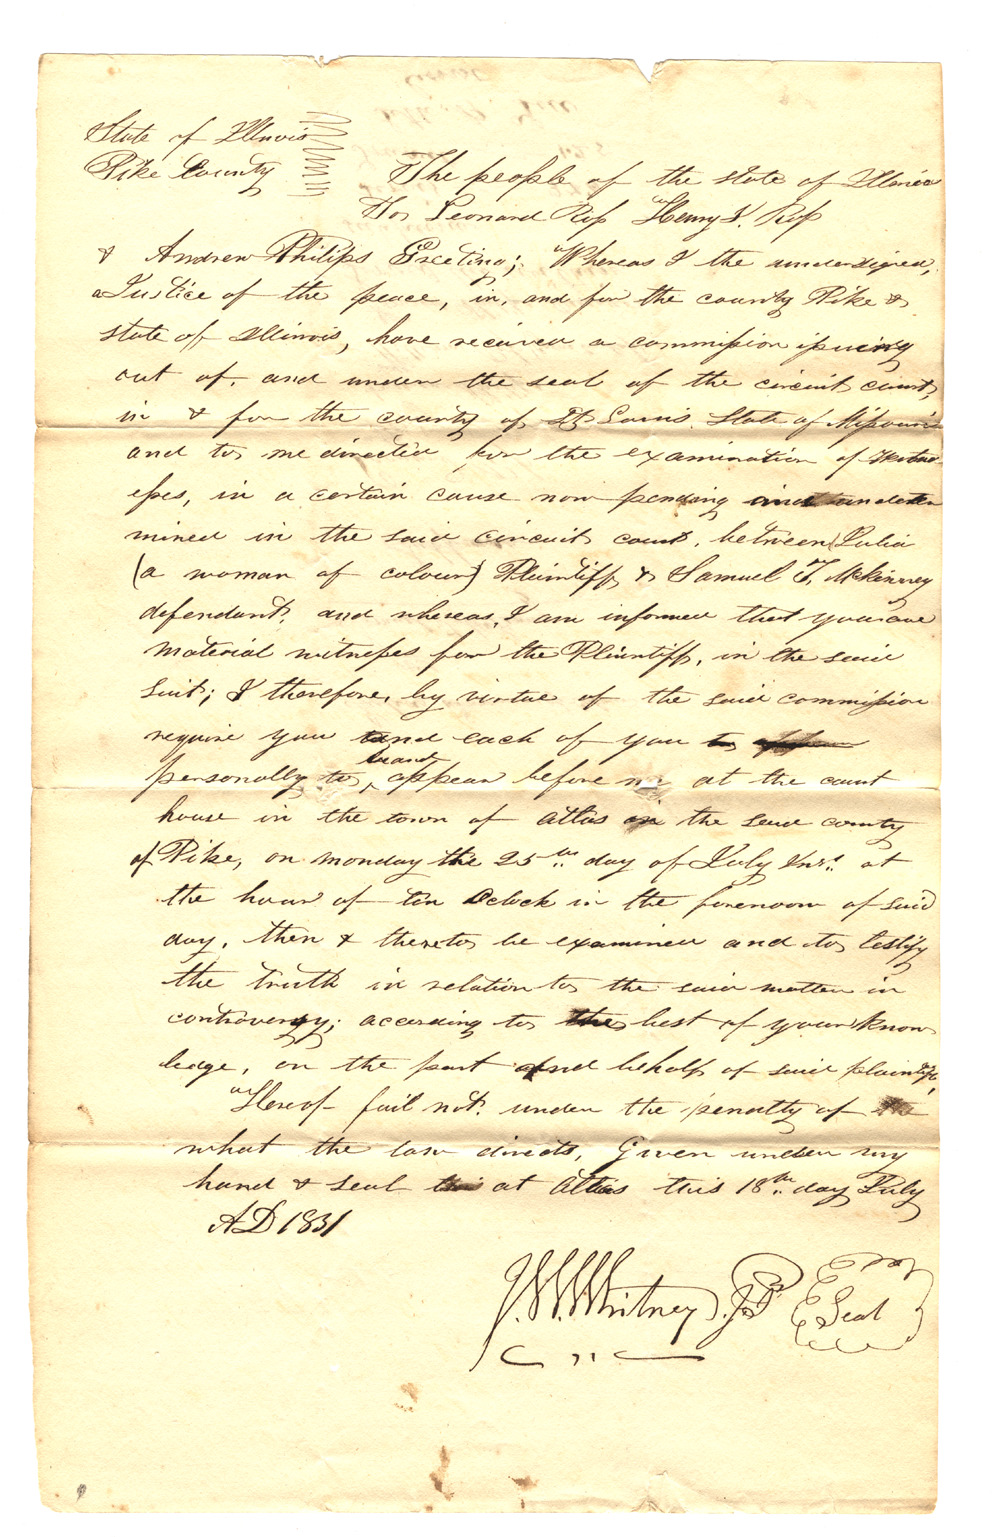 State of Illinois
Pike County
The people of the state of Illinois
To Leonard Ross Henry J. Ross
& Andrew Philips Greeting; Whereas I the undersigned,
a Justice of the peace, in, and for the county Pike &
state of Illinois, have received a commission issuing
out of, and under the seal of the circuit court,
in & for the county of St Louis, State of Missouri
and to me directed for the examination of witn-
esses, in a certain cause now pending and undeter
mined in the said circuit court, between Julia
(a woman of colour) Plaintiff, & Samuel T. McKinney
defendant, and whereas, I am informed that you are
material witnesses for the Plaintiff, in the said
suit; I therefore, by virtue of the said commission
require you and each of you to appear
personally to appear before me at the court
house in the town of Atlas in the said county
of Pike, on monday the 25th day of July Inst. at
the hour of ten Oclock in the forenoon of said
day, then & there to be examined and to testify
the truth in relation to the said matter in
controversy; according to the best of your know
ledge, on the part and behalf of said plaintiff,
Hereof fail not. under the penalty of
what the law directs, Given under my
hand & seal at Atlas this 18th day July
AD 1831
J. W. Whitney J.P. Seal